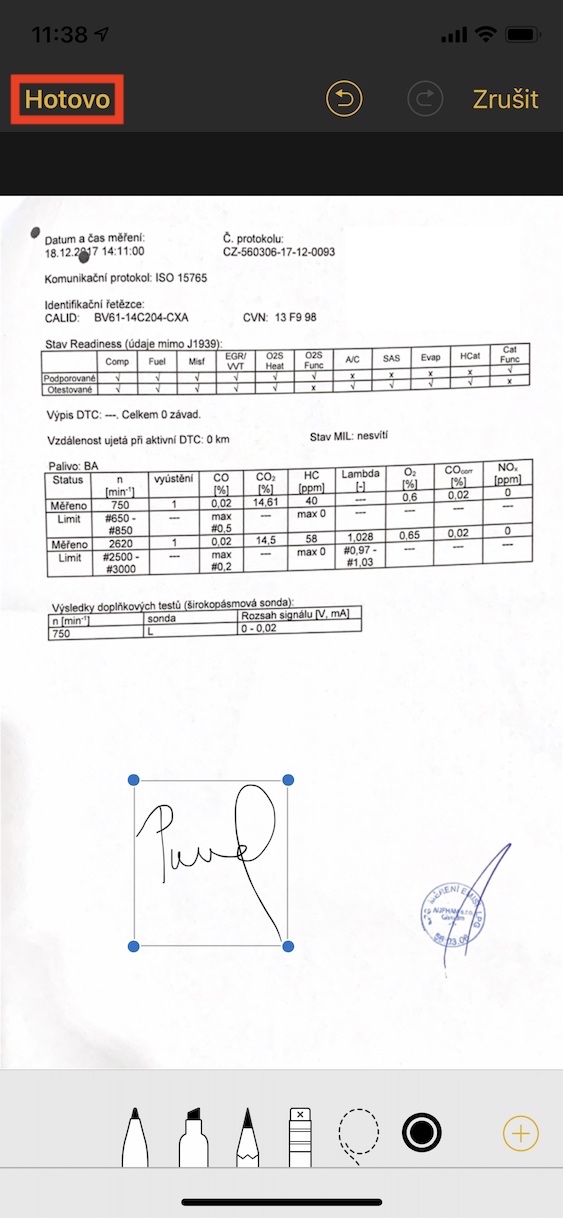 11:38
Hotovo
Zrušit
Datum a čas měření:
18.12.2017 14:11:00
Č. protokolu:
CZ-560306-17-12-0093
Komunikační protokol: ISO 15765
Identifikační řetězce:
CALID: BV61-14C204-CXA CVN: 13 F9 98
Stav Readiness (údaje mimo J1939):
Comp Fuel Misf EGR/VVT O2S Heat O2S Func A/C SAS Evap HCat Cat Func
Podporované √ √ √ √ √ √ x x x x √
Otestované √ √ √ √ √ x √ √ √ √ x
Výpis DTC: ---. Celkem 0 závad.
Vzdálenost ujetá při aktivní DTC: 0 km Stav MIL: nesvítí
Palivo: BA
Status n [min⁻¹] vyústění CO [%] CO₂ [%] HC [ppm] Lambda [-] O₂ [%] COcorr [%] NOₓ [ppm]
Měřeno 750 1 0,02 14,61 40 --- 0,6 0,02 0
Limit #650 - #850 --- max #0,5 --- max 0 --- --- --- ---
Měřeno 2620 1 0,02 14,5 58 1,028 0,65 0,02 0
Limit #2500 - #3000 --- max #0,2 --- max 0 #0,97 - #1,03 --- --- ---
Výsledky doplňkových testů (širokopásmová sonda):
n [min⁻¹] sonda Rozsah signálu [V, mA]
750 L 0 - 0,02
Pavel
MĚŘENÍ EMISÍ LPG